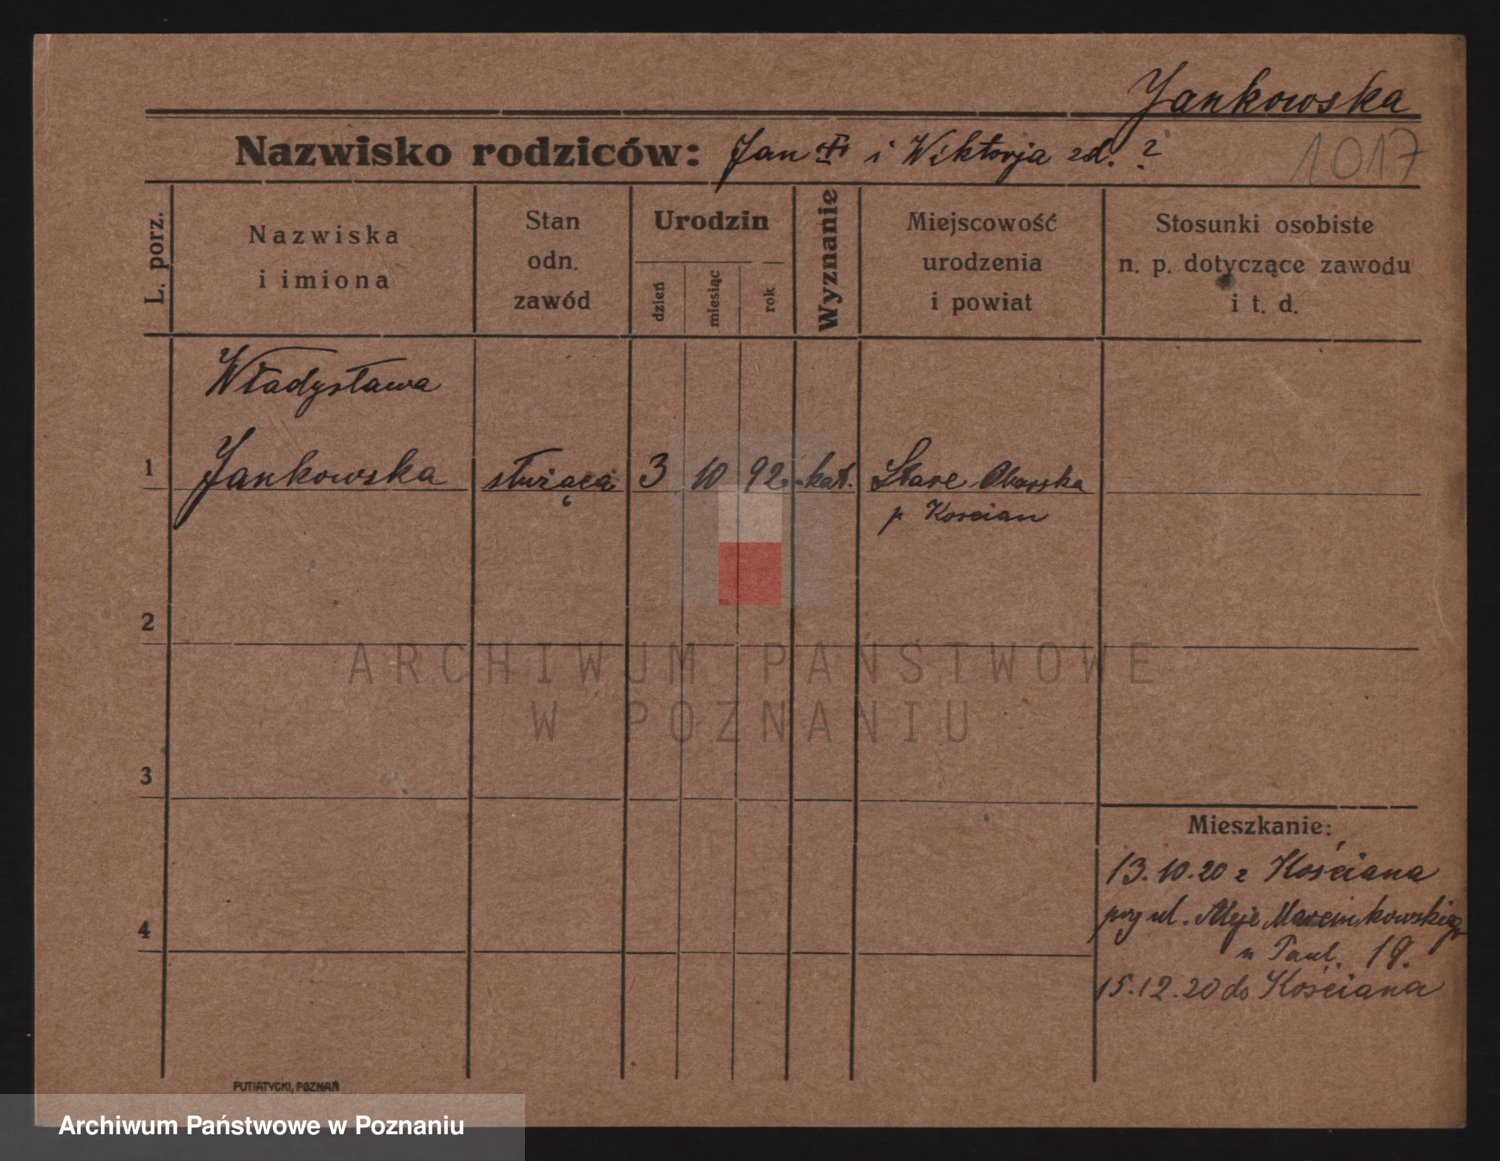 Jankowska
Nazwisko rodziców: Jan i Wiktorja zd. ?
1017
L. porz.
Nazwiska
i imiona
Stan
odn.
zawód
Urodzin
dzień
miesiąc
rok
Wyznanie
Miejscowość
urodzenia
i powiat
Stosunki osobiste
n. p. dotyczące zawodu
i t. d.
Władysława
1 Jankowska służąca 3 10 92 kat. Stare
p Koscian
2
3
4
Mieszkanie:
13.10.20 z Kościana
przy ul. Aleje Marcinkowskiego
19.
15.12.20 do Kościana
PUTIATYCKI, POZNAŃ
ARCHIWUM PAŃSTWOWE
W POZNANIU
Archiwum Państwowe w Poznaniu